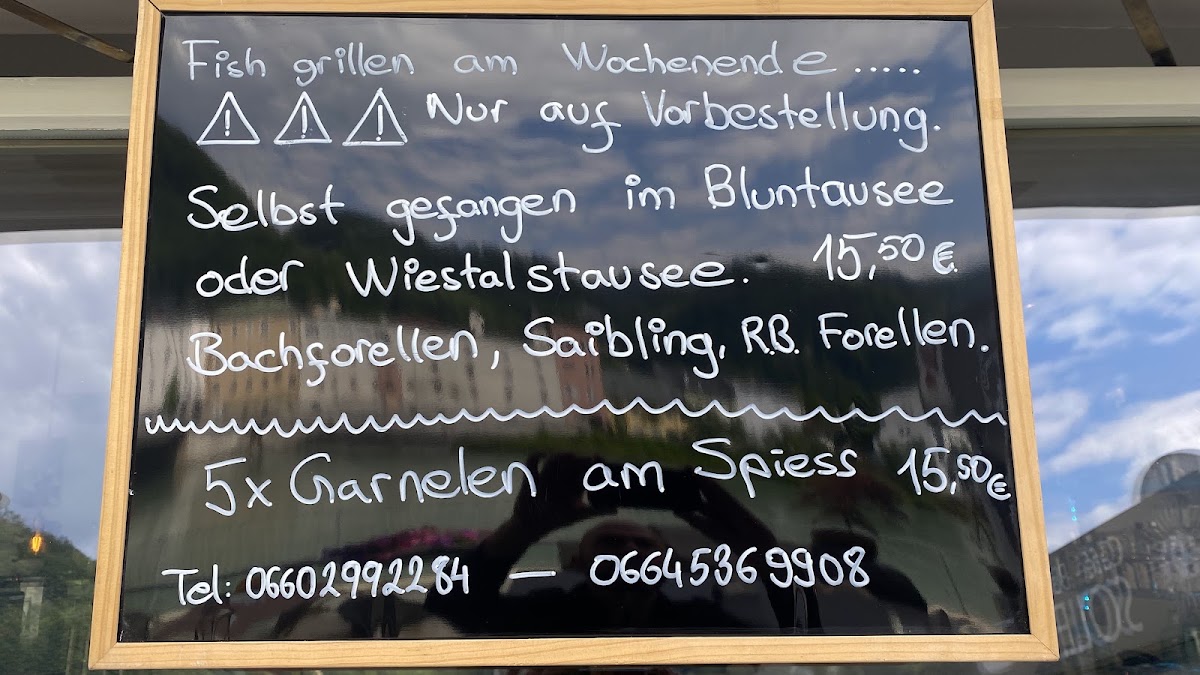 Fish grillen am Wochenende.....
⚠ ⚠ ⚠ Nur auf Vorbestellung.
Selbst gefangen im Bluntausee
oder Wiestalstausee. 15,50€
Bachforellen, Saibling, R.B. Forellen.
5x Garnelen am Spiess 15,50€
Tel: 06602992284 — 06645369908